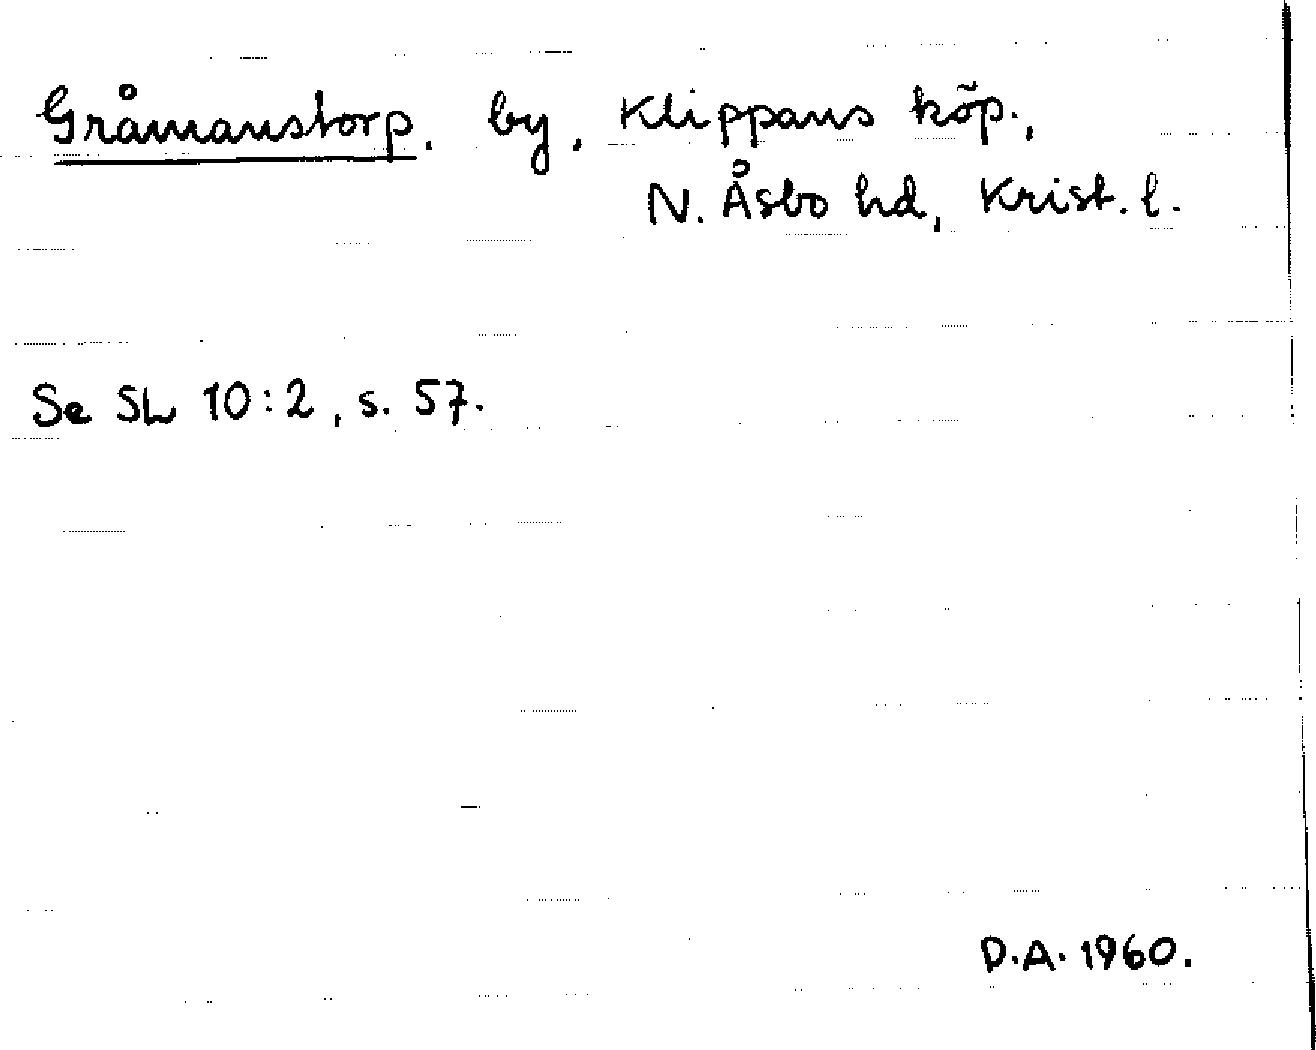 Gråmanstorp, by, Klippans köp.,
N. Åsbo hd, Krist. l.
Se SL 10:2, s. 57.
D.A. 1960.